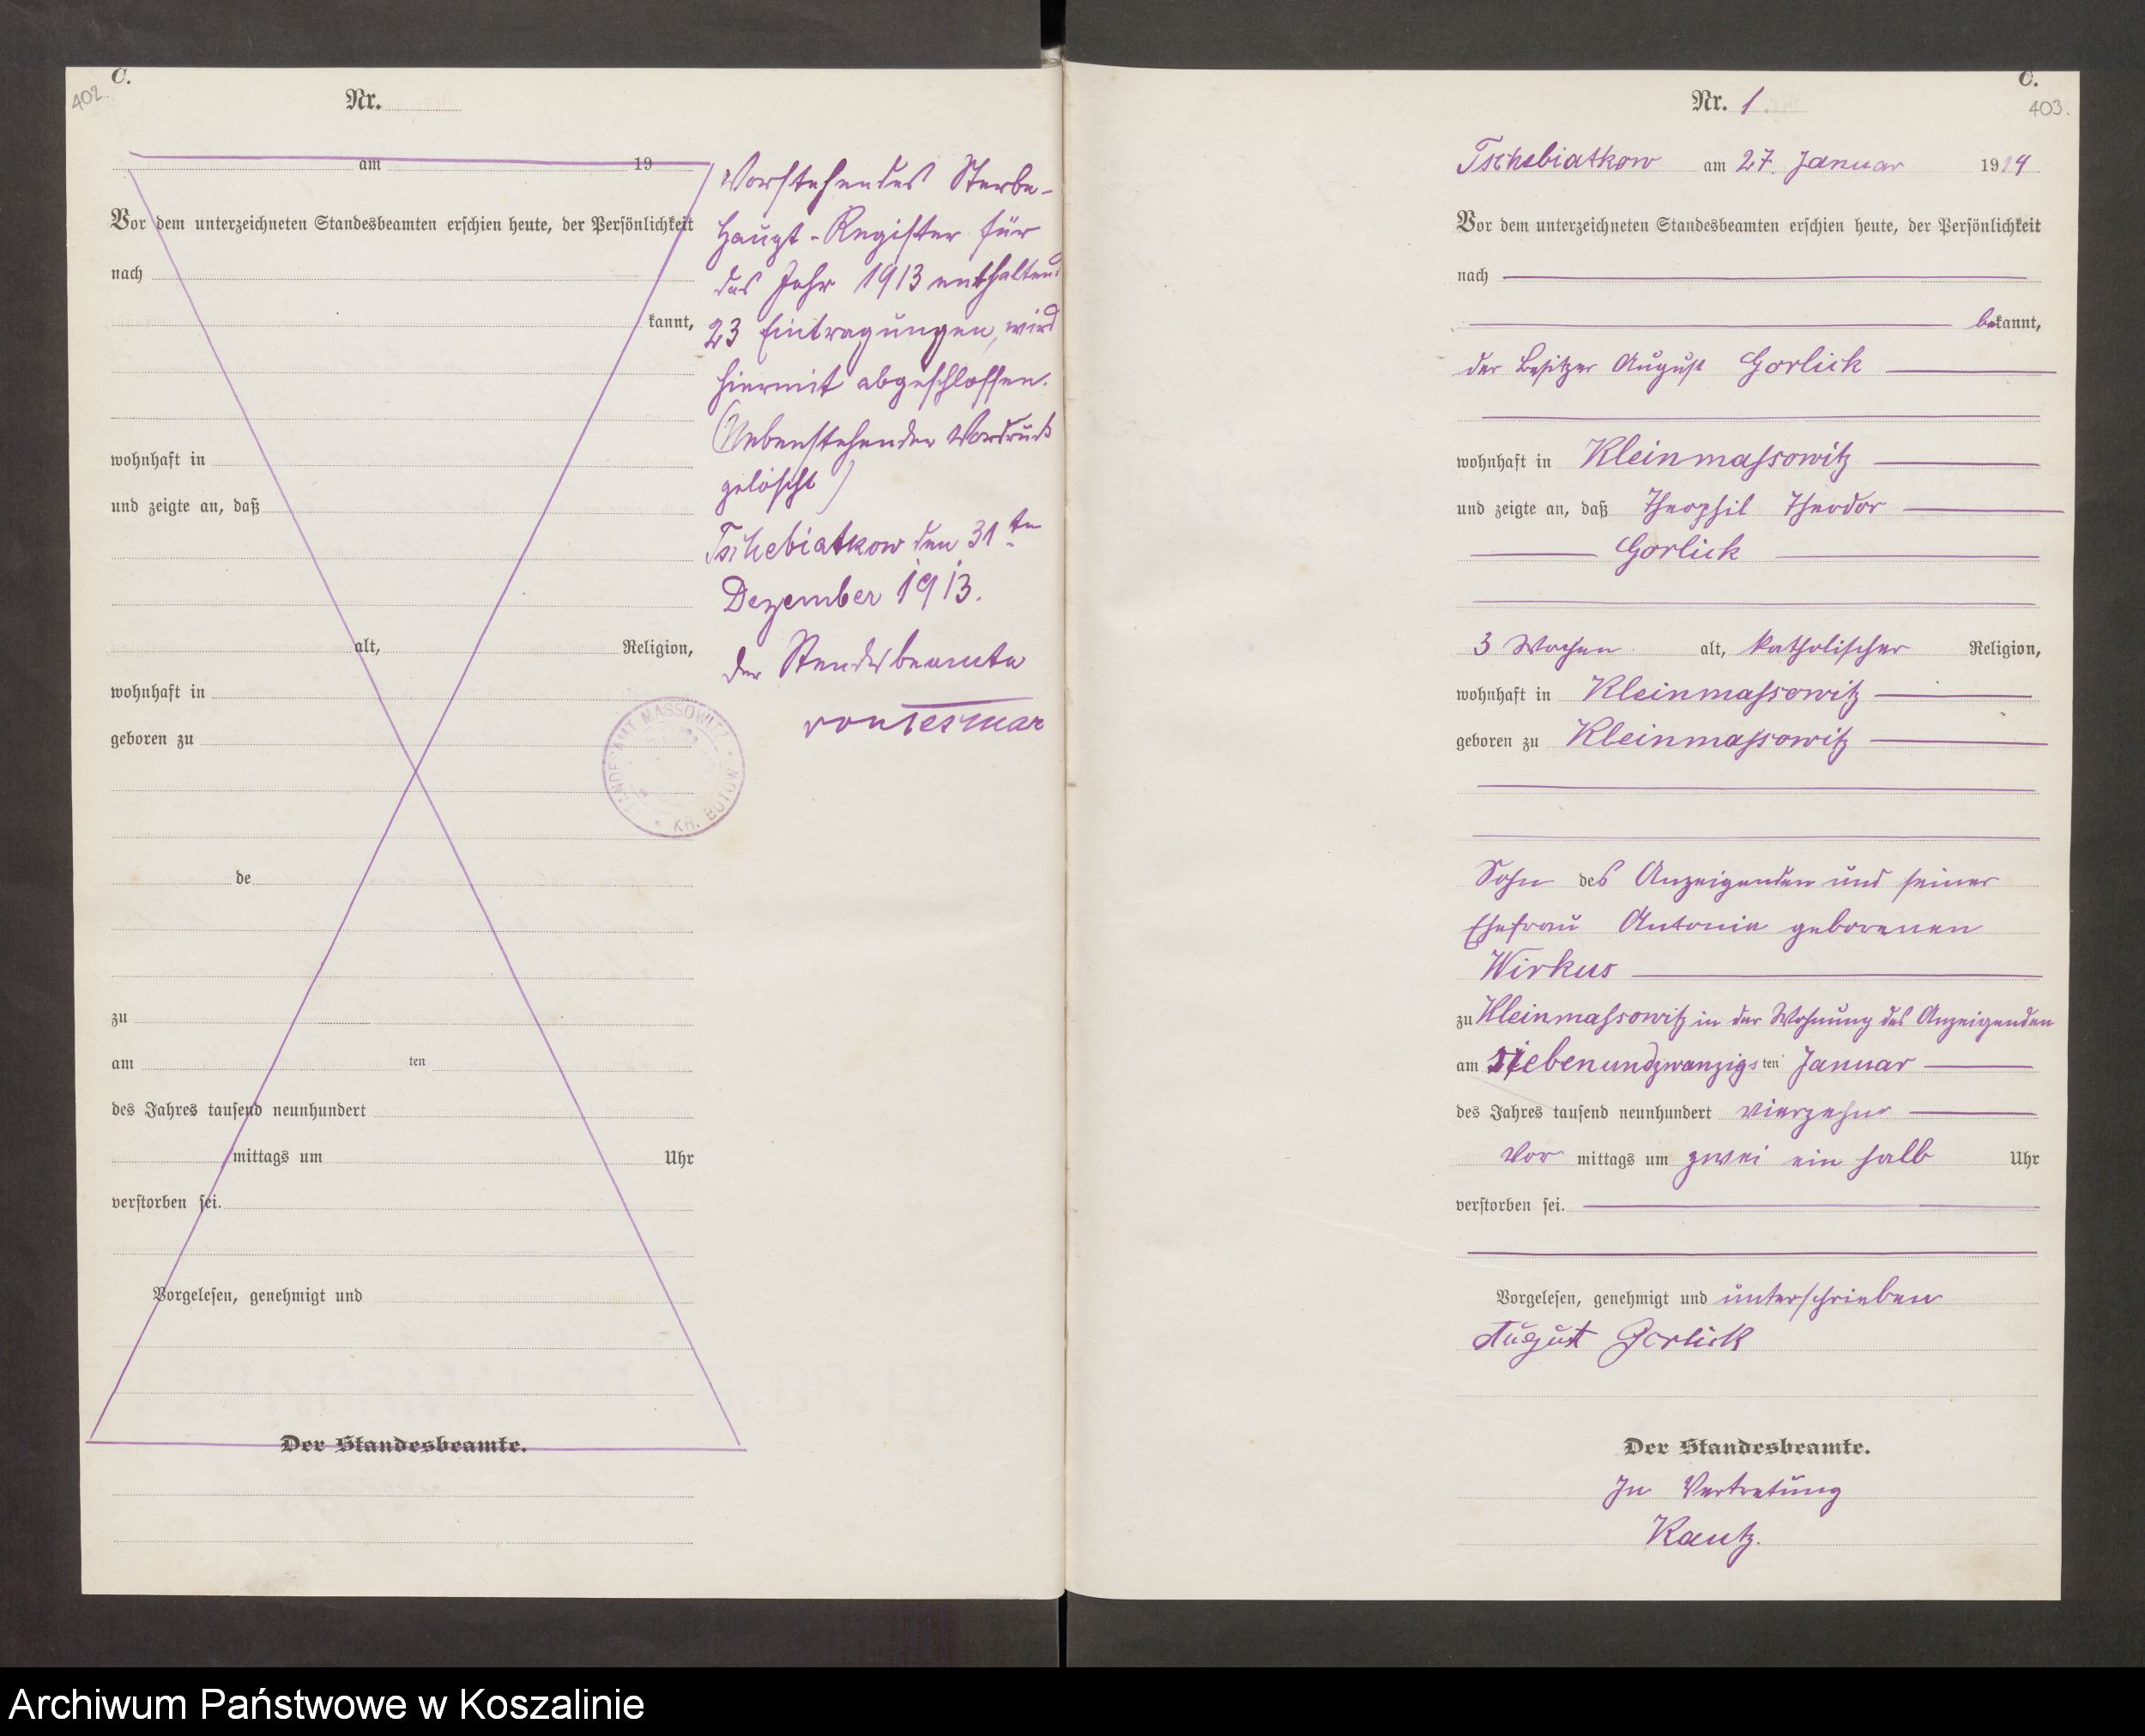 C.
402
Nr.
am 19
Vor dem unterzeichneten Standesbeamten erschien heute, der Persönlichkeit
nach
kannt,
wohnhaft in
und zeigte an, daß
alt, Religion,
wohnhaft in
geboren zu
de
zu
am ten
des Jahres tausend neunhundert
mittags um Uhr
verstorben sei.
Vorgelesen, genehmigt und
Der Standesbeamte.
Vorstehendes Sterbe-
Haupt-Register für
das Jahr 1913 enthaltend
23 Eintragungen, wird
hiermit abgeschlossen.
(Nebenstehender Vordruck
gelöscht)
Tschebiatkow den 31ten
Dezember 1913.
Der Standesbeamte
von Tesmar
STANDESAMT MASSOWITZ * KR. BÜTOW *
C.
403.
Nr. 1
Tschebiatkow am 27. Januar 1914
Vor dem unterzeichneten Standesbeamten erschien heute, der Persönlichkeit
nach
bekannt,
der Besitzer August Gorlick
wohnhaft in Kleinmassowitz
und zeigte an, daß Theophil Theodor
Gorlick
3 Wochen alt, katholischer Religion,
wohnhaft in Kleinmassowitz
geboren zu Kleinmassowitz
Sohn des Anzeigenden und seiner
Ehefrau Antonia geborenen
Wirkus
zu Kleinmassowitz in der Wohnung des Anzeigenden
am siebenundzwanzigsten Januar
des Jahres tausend neunhundert vierzehn
Vor mittags um zwei ein halb Uhr
verstorben sei.
Vorgelesen, genehmigt und unterschrieben
August Gorlick
Der Standesbeamte.
In Vertretung
Kautz.
Archiwum Państwowe w Koszalinie